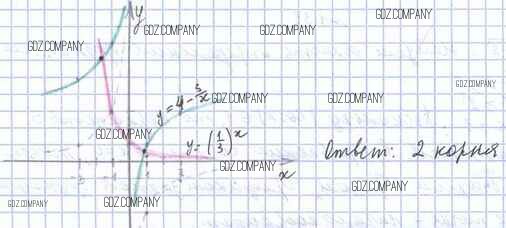 y
GDZ.COMPANY
GDZ.COMPANY
GDZ.COMPANY
GDZ.COMPANY
GDZ.COMPANY
y = 4 - 3/x
GDZ.COMPANY
GDZ.COMPANY
GDZ.COMPANY
y = (1/3)^x
Ответ: 2 корня
GDZ.COMPANY
x
GDZ.COMPANY
GDZ.COMPANY
GDZ.COMPANY